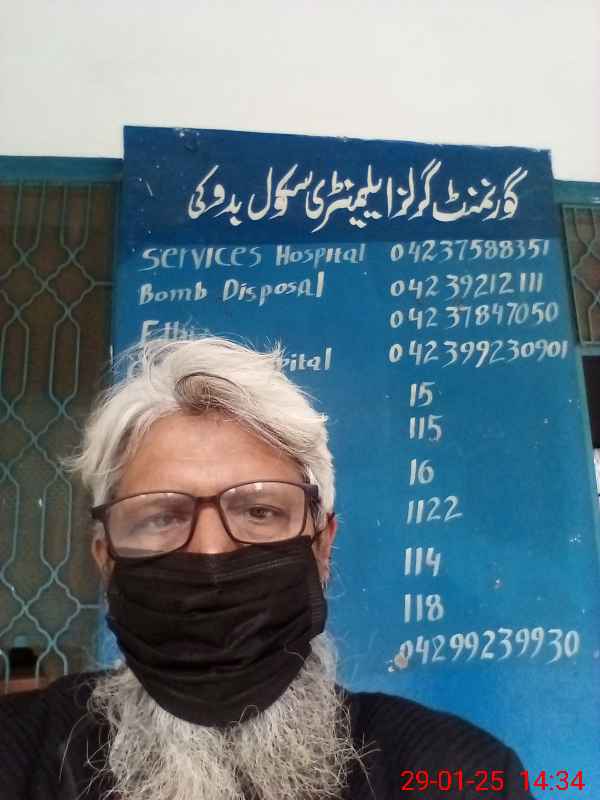 گورنمنٹ گرلز ایلیمنٹری سکول بدوکی
Services Hospital 04237588351
Bomb Disposal 04239212111
04237847050
042399230901
15
115
16
1122
114
118
04299239930
29-01-25 14:34